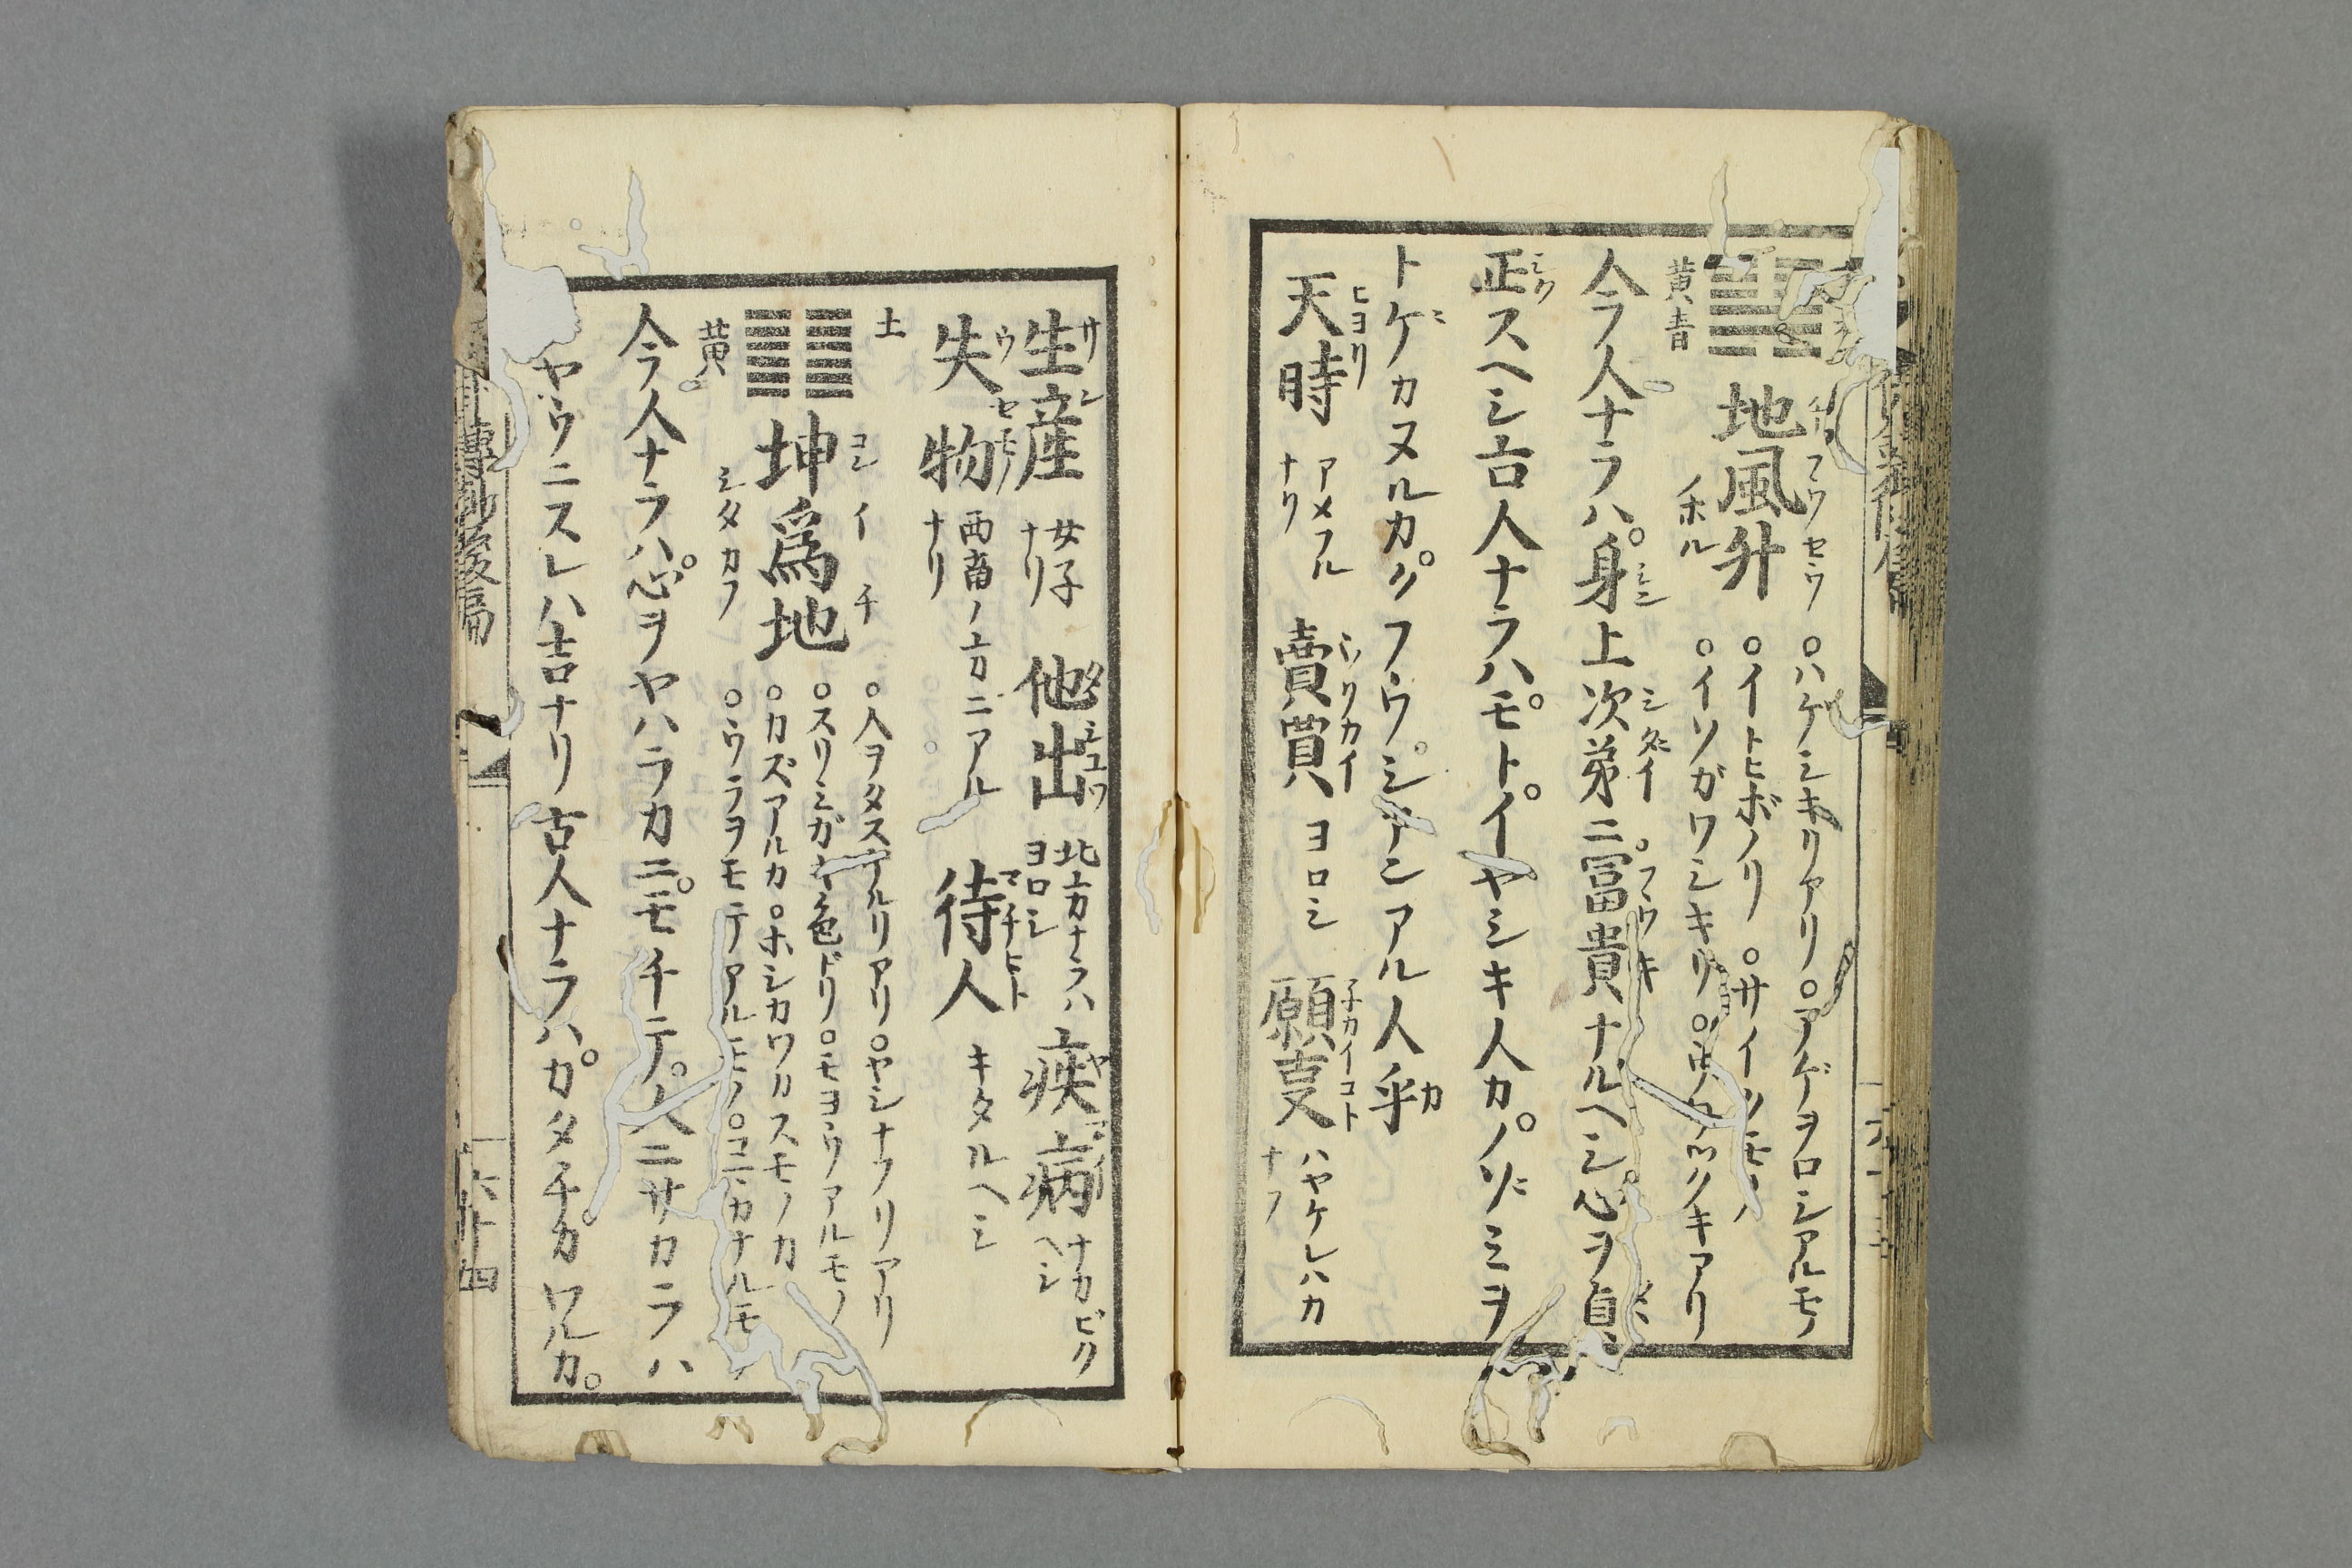 地風升 ○ハゲシキリアリ○アゲヲロシアルモノ
フウセウ
ノホル
○イトヒボノリ○サイソクモノ
○イソガワシキリ
黄青
今フ人ナラハ○身上次第ニ○冨貴ナルヘシ○心ヲ貞
正スヘシ古人ナラハ○モト○イヤシキ人カ○ノソミヲ
トケカヌルカ○クフウ○シアンアル人乎
天時 アメフルナリ 賣買 ヨロシ 願叓 ハヤケレハカナフ
ヒヨリ ウリカイ 子カイコト
生産 女子ナリ 他出 北方ナラハヨロシ 疾病 ナカビクヘシ
サン タシユツ ヤマイ
失物 西南ノ方ニアルナリ 待人 キタルヘシ
ウセモノ マチヒト
土
坤爲地 ○人ヲタスケルリアリ○ヤシナフリアリ
コン イ チ
シタカフ
○スリミガキ色ドリ○モヨウアルモノ
○カズアルカ○ホシカワカスモノカ
○ウラヲモテアルモノ○コマカナルモノ
黄
今フ人ナラハ○心ヲヤハラカニ○モチテ○人ニサカラハ
ヤウニスレハ吉ナリ古人ナラハ○カタチカワルカ○
後篇
六十四